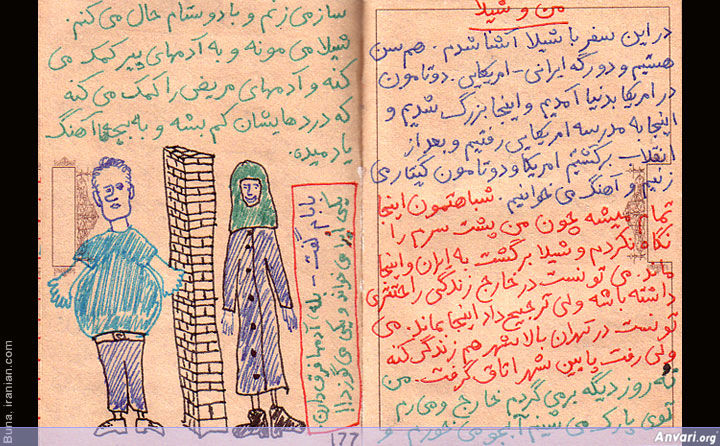 من و شیلا
در این سفر با شیلا آشنا شدم. هم سن
هستیم و دو رگه ایرانی - امریکایی. دوتامون
در امریکا بدنیا آمدیم و اینجا بزرگ شدیم و
اینجا به مدرسه امریکایی رفتیم و بعد از
انقلاب برگشتیم امریکا و دوتامون گیتار می
زنیم و آهنگ می خوانیم.
شباهتمون اینجا
تمام میشه چون من پشت سرم را
نگاه نکردم و شیلا برگشت به ایران و اینجا
ماند. می تونست در خارج زندگی راحتتری
داشته باشه ولی ترجیح داد اینجا بماند. می
تونست در تهران بالا شهر هم زندگی کنه
ولی رفت پایین شهر اتاقی گرفت. من
نه روز دیگه برمی گردم خارج و می رم
توی پارک می شینم آبجو می خورم و
ساز می زنم و با دوستام حال می کنم.
شیلا می مونه و به آدمهای پیر کمک می
کنه و آدمهای مریض را کمک می کنه
که دردهایشان کم بشه و به بچه ها آهنگ
یاد میده.
بابام گفت - بله آدمها فرق دارن
یکی می خواند و یکی می گوزد!!
177
Buna. iranian.com
Anvari.org